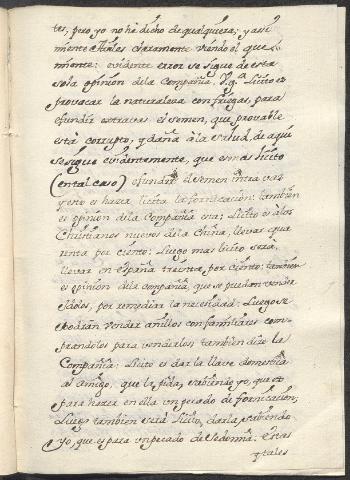 tes, pero yo no he dicho de qualquiera; y assi
miente Amles claramente viendo el que
miente: evidente error se sigue de esta
sola opinion de la Compañia. V.g.ª Licito es
provocar la naturaleza con friegas, para
efundir extra vas el semen, que provable
esta corrupto, y daña à la salud, de aqui
se sigue evidentemente, que es mas licito
(en tal caso) efundir el semen intra vas
y esto es hazer licita la fornicacion: tambien
es opinion de la Compañia esta; Licito es à los
Christianos nuevos de la China, llevar qua
renta por ciento: Luego mas licito serà
llevar en España treinta por ciento: tambien
es opinion de la compañia, que se puedan vender
Idolos, por remediar la necesidad: Luego se
podran vender anillos con familiares com-
prandolos para venderlos: tambien dize la
Compañia: Licito es dar la llave domestica
al amigo, que la pida, sabiendo yo, que es
para hazer en ella un pecado de fornicacion;
Luego tambien serà licito, darla, sabiendo
yo, que es para un pecado de Sodomia: Estas
y tales